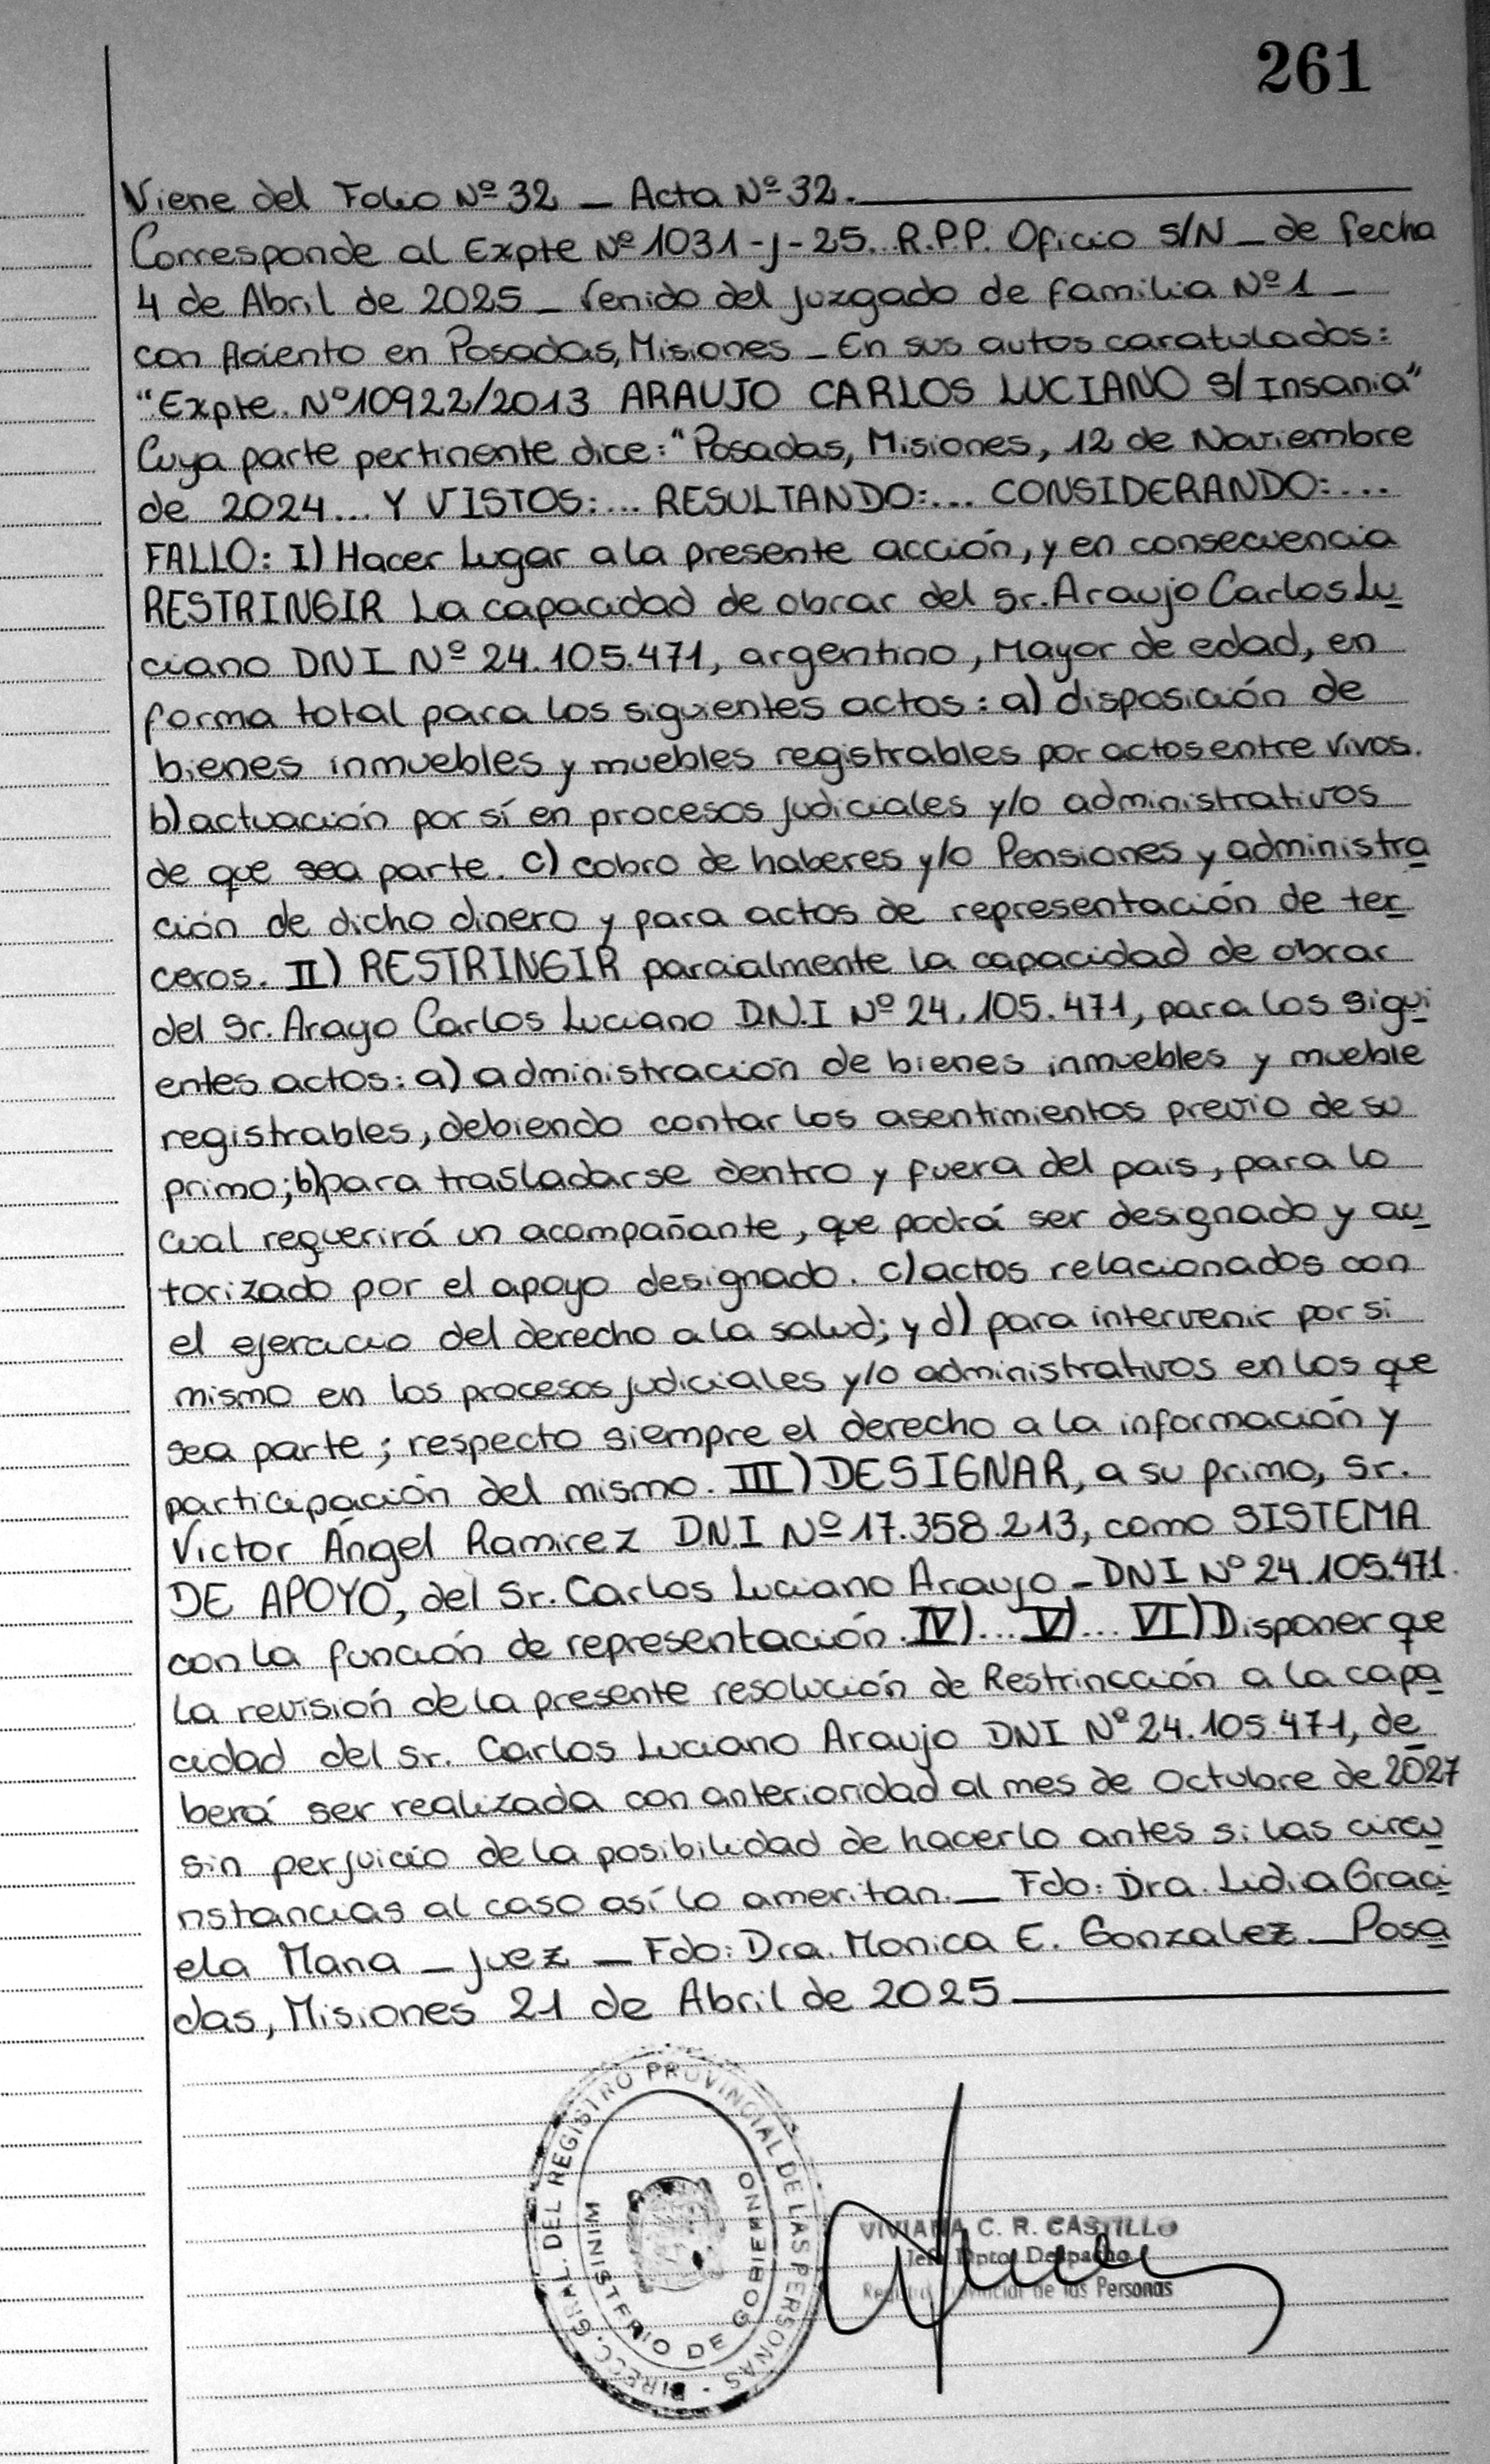 261
Viene del Folio Nº 32 _ Acta Nº 32.
Corresponde al Expte Nº 1031-J-25. R.P.P. Oficio S/N _ de fecha
4 de Abril de 2025 _ Venido del Juzgado de familia Nº 1 _
con Aciento en Posadas, Misiones _ En sus autos caratulados:
"Expte. Nº 10922/2013 ARAUJO CARLOS LUCIANO S/ Insania"
Cuya parte pertinente dice: "Posadas, Misiones, 12 de Noviembre
de 2024... Y VISTOS:... RESULTANDO:... CONSIDERANDO:...
FALLO: I) Hacer Lugar a la presente acción, y en consecuencia
RESTRINGIR La capacidad de obrar del Sr. Araujo Carlos Lu
ciano DNI Nº 24.105.471, argentino, Mayor de edad, en
forma total para los siguientes actos: a) disposición de
bienes inmuebles y muebles registrables por actos entre vivos.
b) actuación por sí en procesos judiciales y/o administrativos
de que sea parte. c) cobro de haberes y/o Pensiones y administra
ción de dicho dinero y para actos de representación de ter
ceros. II) RESTRINGIR parcialmente la capacidad de obrar
del Sr. Arayo Carlos Luciano D.N.I Nº 24.105.471, para los sigui
entes actos: a) administración de bienes inmuebles y mueble
registrables, debiendo contar los asentimientos previo de su
primo; b) para trasladarse dentro y fuera del pais, para lo
cual requerirá un acompañante, que podrá ser designado y au
torizado por el apoyo designado. c) actos relacionados con
el ejercicio del derecho a la salud; y d) para intervenir por si
mismo en los procesos judiciales y/o administrativos en los que
sea parte; respecto siempre el derecho a la información y
participación del mismo. III) DESIGNAR, a su primo, Sr.
Victor Ángel Ramirez D.N.I Nº 17.358.213, como SISTEMA
DE APOYO, del Sr. Carlos Luciano Araujo _ DNI Nº 24.105.471.
con la función de representación. IV)... V)... VI) Disponer que
La revisión de la presente resolución de Restrincción a la capa
cidad del Sr. Carlos Luciano Araujo DNI Nº 24.105.471, de
berá ser realizada con anterioridad al mes de Octubre de 2027
sin perjuicio de la posibilidad de hacerlo antes si las circu
nstancias al caso así lo ameritan. _ Fdo: Dra. Lidia Graci
ela Mana _ Juez _ Fdo: Dra. Monica E. Gonzalez _ Posa
das, Misiones 21 de Abril de 2025
DIRECC. GRAL. DEL REGISTRO PROVINCIAL DE LAS PERSONAS
MINISTERIO DE GOBIERNO
VIVIANA C. R. CASTILLO
Jefe Dpto. Despacho
Registro Provincial de las Personas